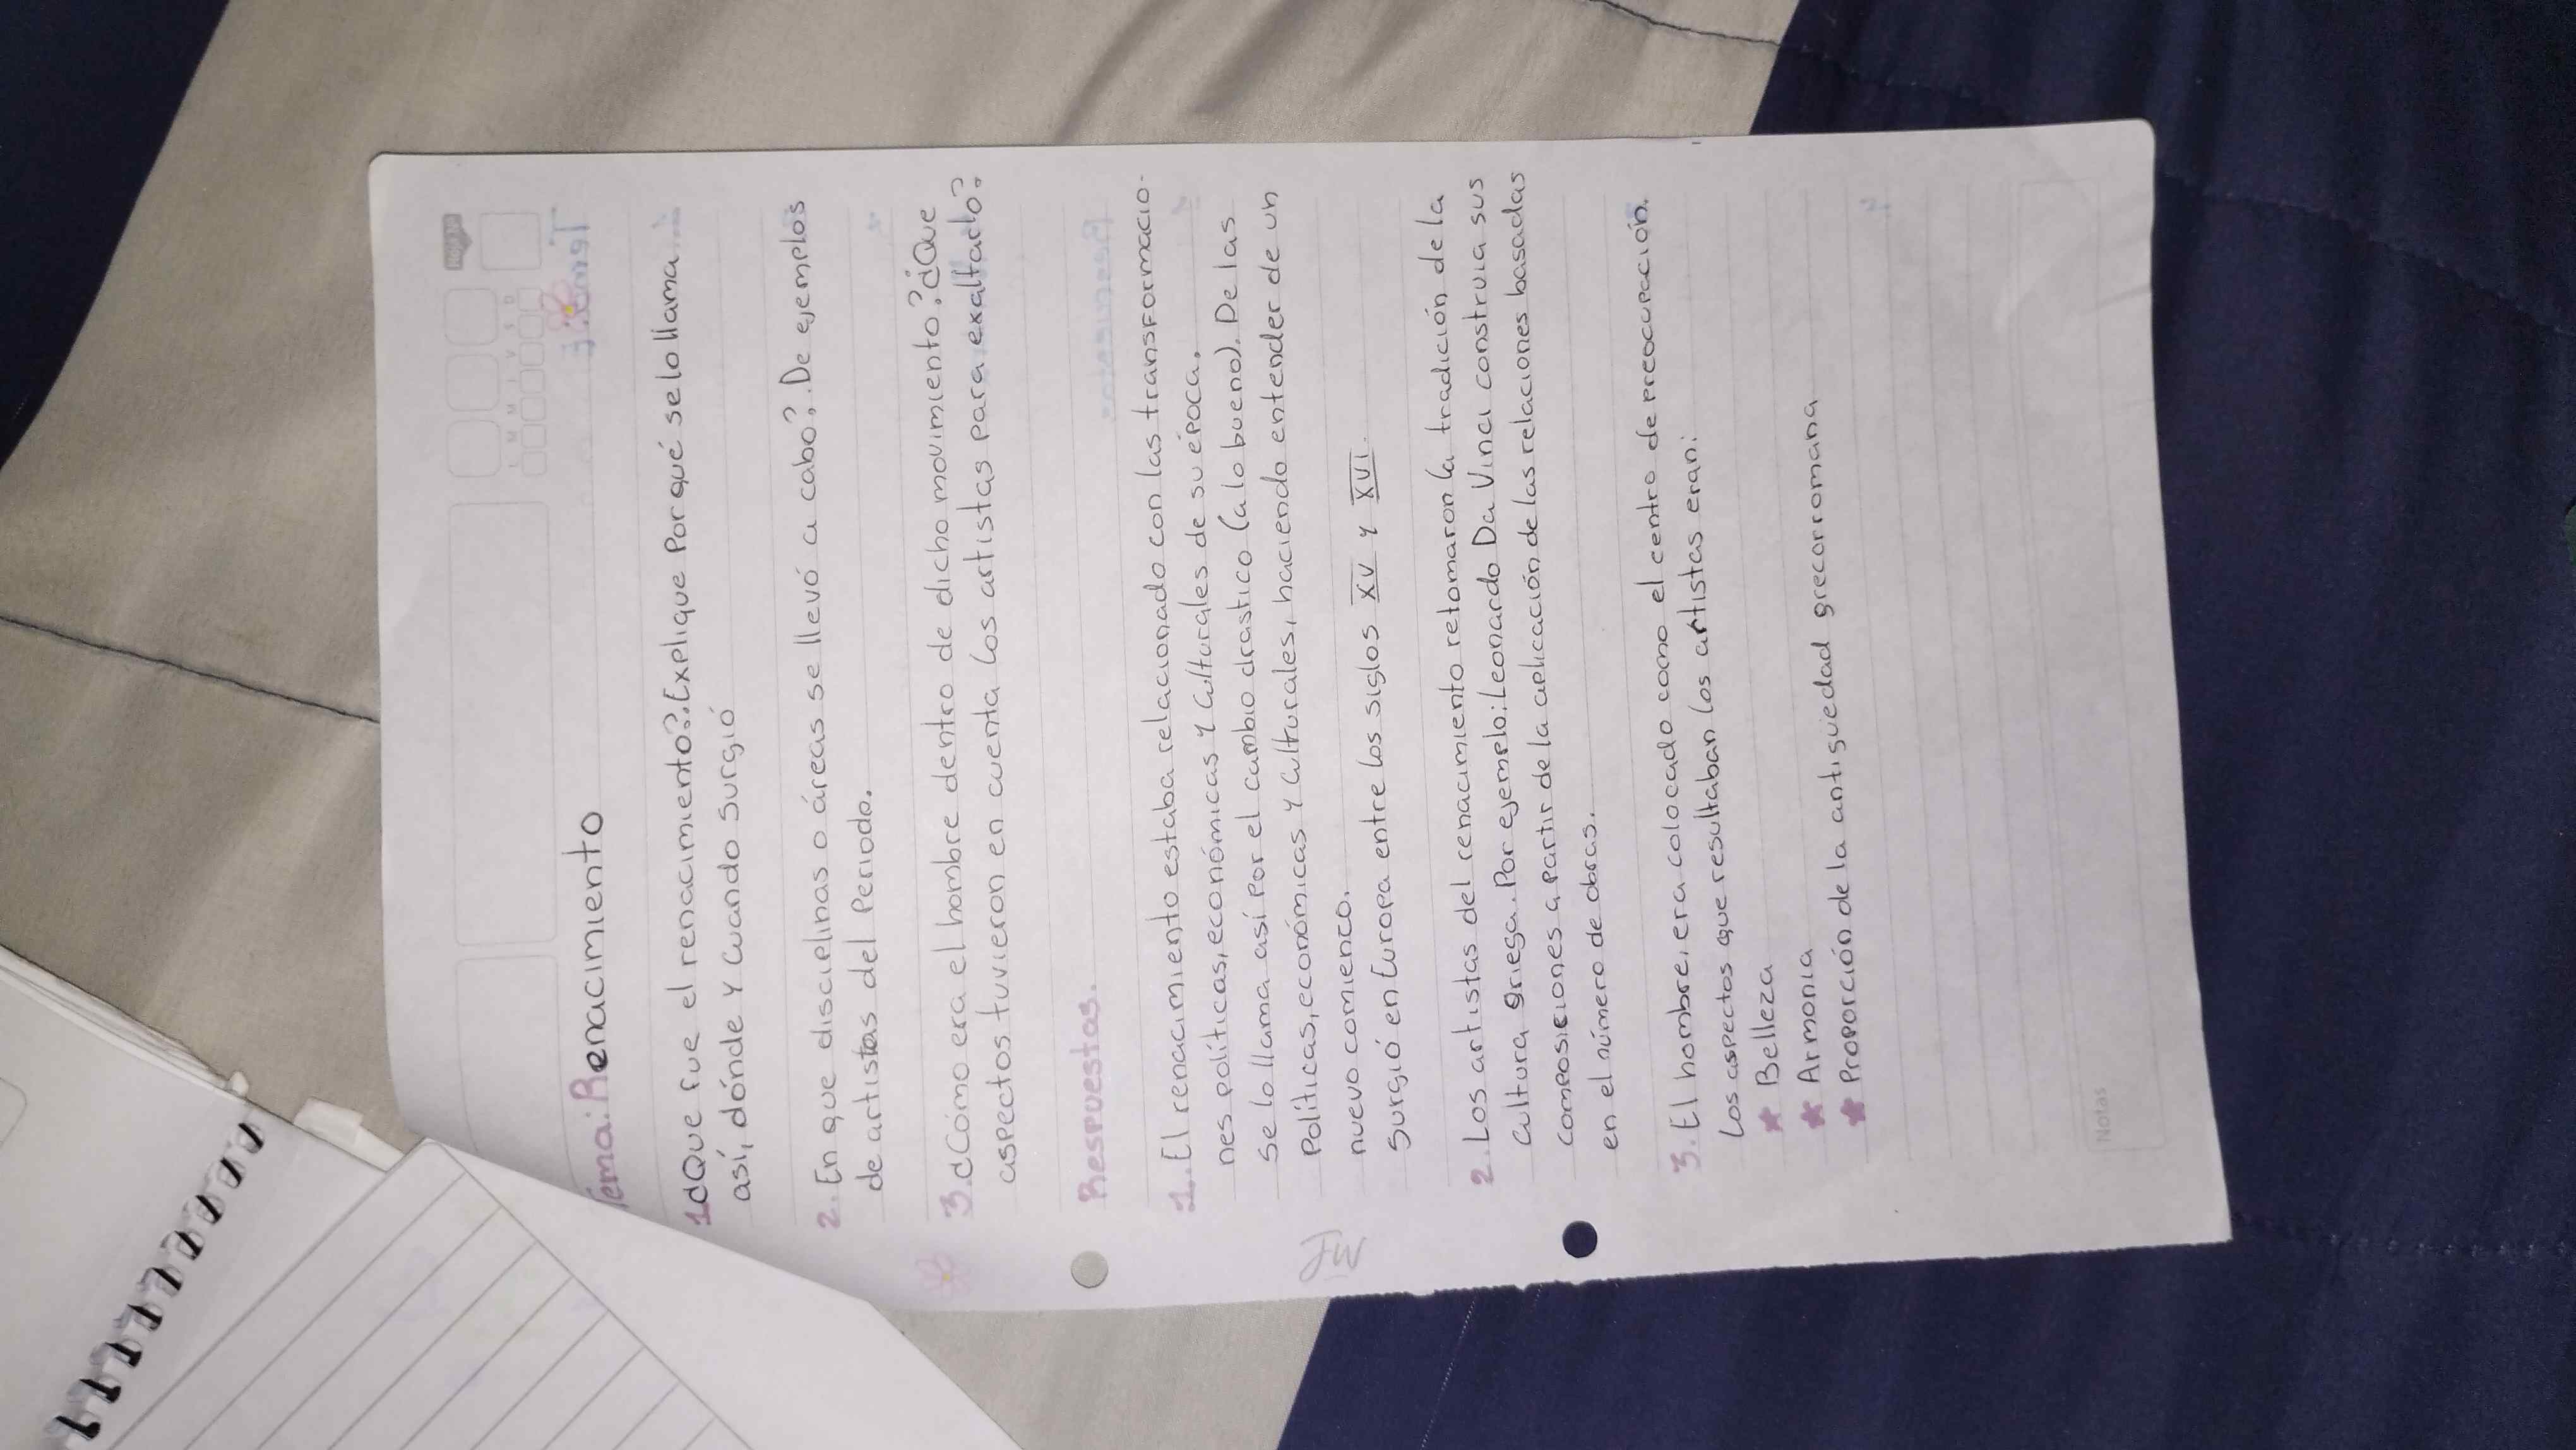 NORMA
L M M J V S D
Tema: Renacimiento
1.¿Que fue el renacimiento?. Explique Por qué se lo llama
así, dónde y cuando surgió
2. En que disciplinas o áreas se llevó a cabo?. De ejemplos
de artistas del Periodo.
3.¿Cómo era el hombre dentro de dicho movimiento?¿Que
aspectos tuvieron en cuenta los artistas para exaltarlo?
Respuestas.
1. El renacimiento estaba relacionado con las transformacio-
nes políticas, económicas y culturales de su época.
Se lo llama así por el cambio drastico (a lo bueno). De las
Políticas, económicas y culturales, haciendo entender de un
nuevo comienco.
Surgió en Europa entre los siglos XV y XVI.
2. Los artistas del renacimiento retomaron la tradición de la
cultura griega. Por ejemplo: Leonardo Da Vinci construia sus
composiciones a partir de la aplicación de las relaciones basadas
en el número de obras.
3. El hombre, era colocado como el centro de preocupación.
Los aspectos que resultaban los artistas eran:
★ Belleza
★ Armonia
★ Proporción de la antigüedad grecorromana
Notas